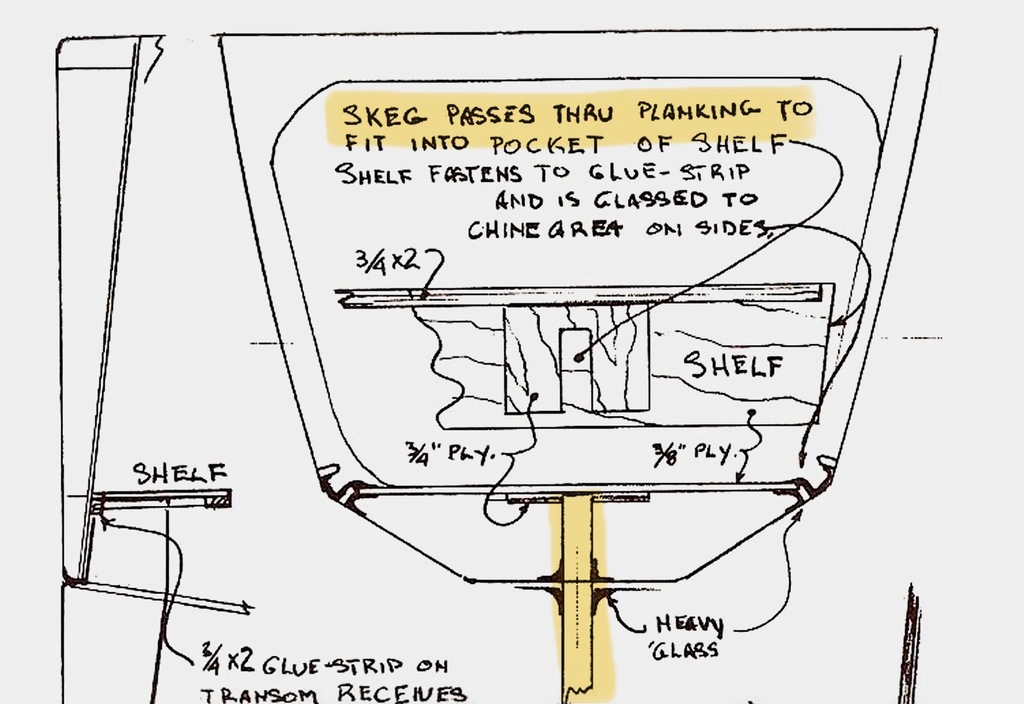 SKEG PASSES THRU PLANKING TO
FIT INTO POCKET OF SHELF
SHELF FASTENS TO GLUE-STRIP
AND IS GLASSED TO
CHINE AREA ON SIDES,
3/4 x 2
SHELF
3/4" PLY.
3/8" PLY.
SHELF
HEAVY
GLASS
3/4 x 2 GLUE-STRIP ON
TRANSOM RECEIVES